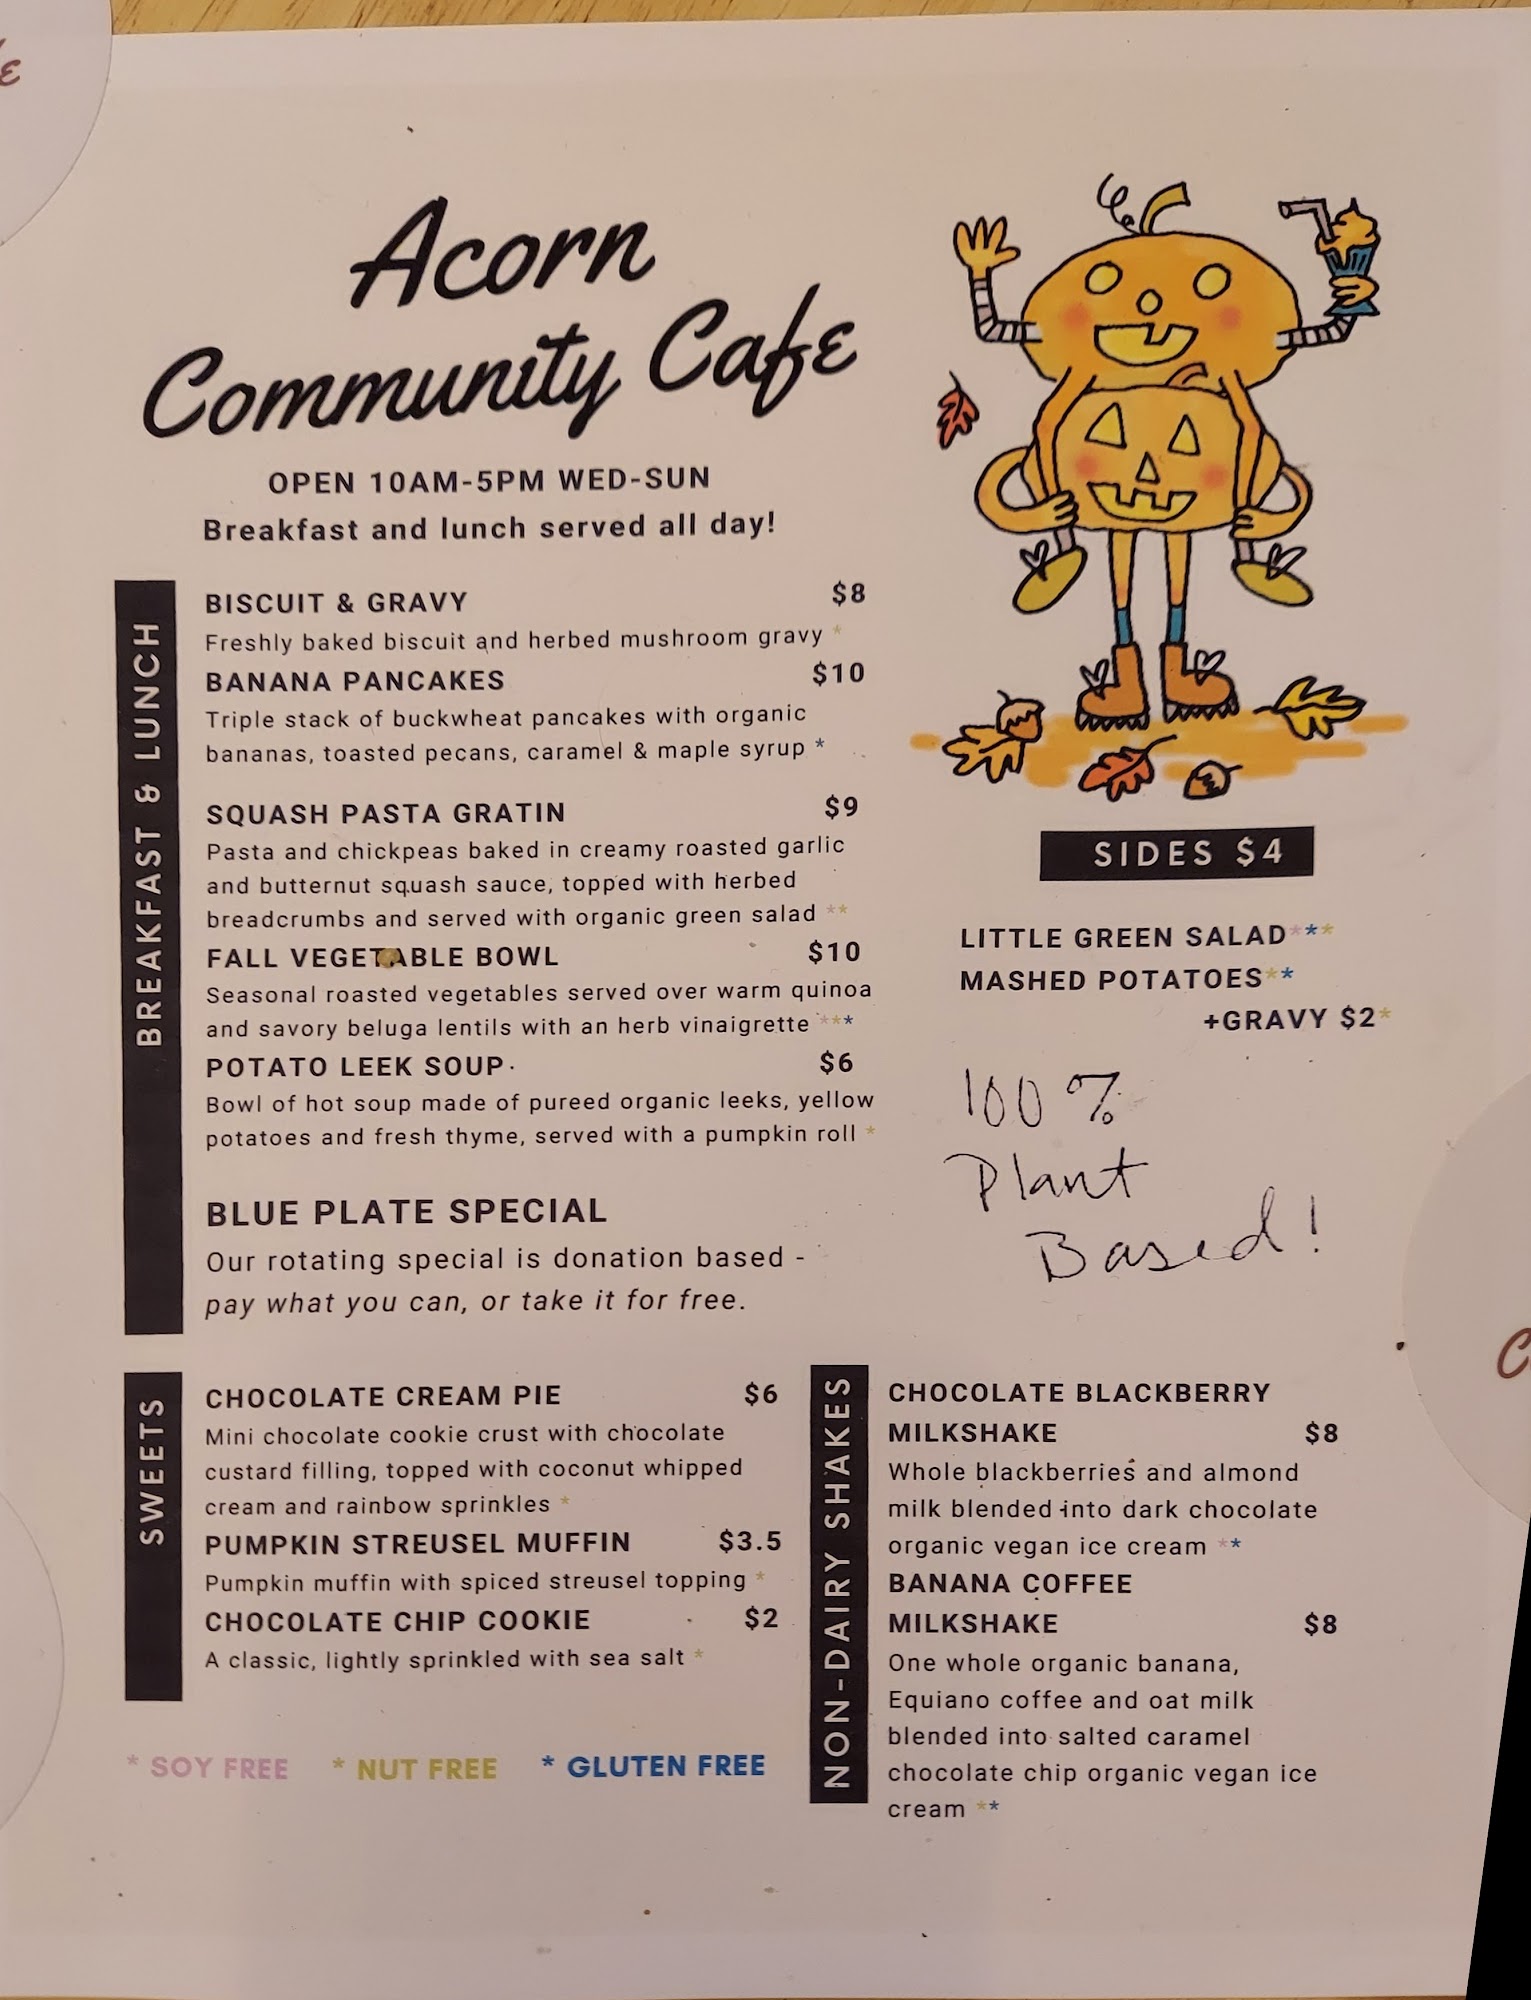 Acorn
Community Cafe
OPEN 10AM-5PM WED-SUN
Breakfast and lunch served all day!
BREAKFAST & LUNCH
BISCUIT & GRAVY $8
Freshly baked biscuit and herbed mushroom gravy *
BANANA PANCAKES $10
Triple stack of buckwheat pancakes with organic
bananas, toasted pecans, caramel & maple syrup *
SQUASH PASTA GRATIN $9
Pasta and chickpeas baked in creamy roasted garlic
and butternut squash sauce, topped with herbed
breadcrumbs and served with organic green salad **
FALL VEGETABLE BOWL $10
Seasonal roasted vegetables served over warm quinoa
and savory beluga lentils with an herb vinaigrette ***
POTATO LEEK SOUP $6
Bowl of hot soup made of pureed organic leeks, yellow
potatoes and fresh thyme, served with a pumpkin roll *
BLUE PLATE SPECIAL
Our rotating special is donation based -
pay what you can, or take it for free.
SIDES $4
LITTLE GREEN SALAD***
MASHED POTATOES**
+GRAVY $2*
100%
Plant
Based!
SWEETS
CHOCOLATE CREAM PIE $6
Mini chocolate cookie crust with chocolate
custard filling, topped with coconut whipped
cream and rainbow sprinkles *
PUMPKIN STREUSEL MUFFIN $3.5
Pumpkin muffin with spiced streusel topping *
CHOCOLATE CHIP COOKIE $2
A classic, lightly sprinkled with sea salt *
NON-DAIRY SHAKES
CHOCOLATE BLACKBERRY
MILKSHAKE $8
Whole blackberries and almond
milk blended into dark chocolate
organic vegan ice cream **
BANANA COFFEE
MILKSHAKE $8
One whole organic banana,
Equiano coffee and oat milk
blended into salted caramel
chocolate chip organic vegan ice
cream **
* SOY FREE * NUT FREE * GLUTEN FREE